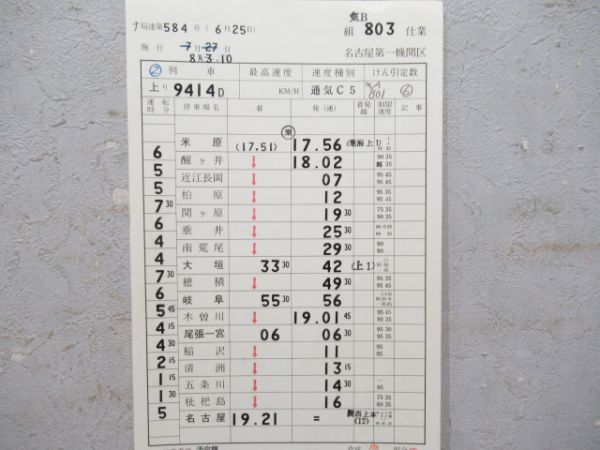 ナ局達第584号(6月25日)
気B
組 803 仕業
施行 7月27日
8月3.10
名古屋第一機関区
② 列車 最高速度 速度種別 けん引定数
上り 9414D KM/H 通気C5 801 ⑥
運転時分 停車場名 着 発(通) 着発線 制限速度 記事
乗
米原 (17.51) 17.56 (東海上1)
6 醒ヶ井 ↓ 18.02
5 近江長岡 ↓ 07
5 柏原 ↓ 12
7 30 関ヶ原 ↓ 19 30
6 垂井 ↓ 25 30
4 南荒尾 ↓ 29 30
4 大垣 33 30 42 (上1)
7 30 穂積 ↓ 49 30
6 岐阜 55 30 56
5 45 木曽川 ↓ 19.01 45
4 15 尾張一宮 06 06 30
4 30 稲沢 ↓ 11
2 15 清洲 ↓ 13 15
1 15 五条川 ↓ 14 30
1 30 枇杷島 ↓ 16
5 名古屋 19.21 = 関西上本 (12)